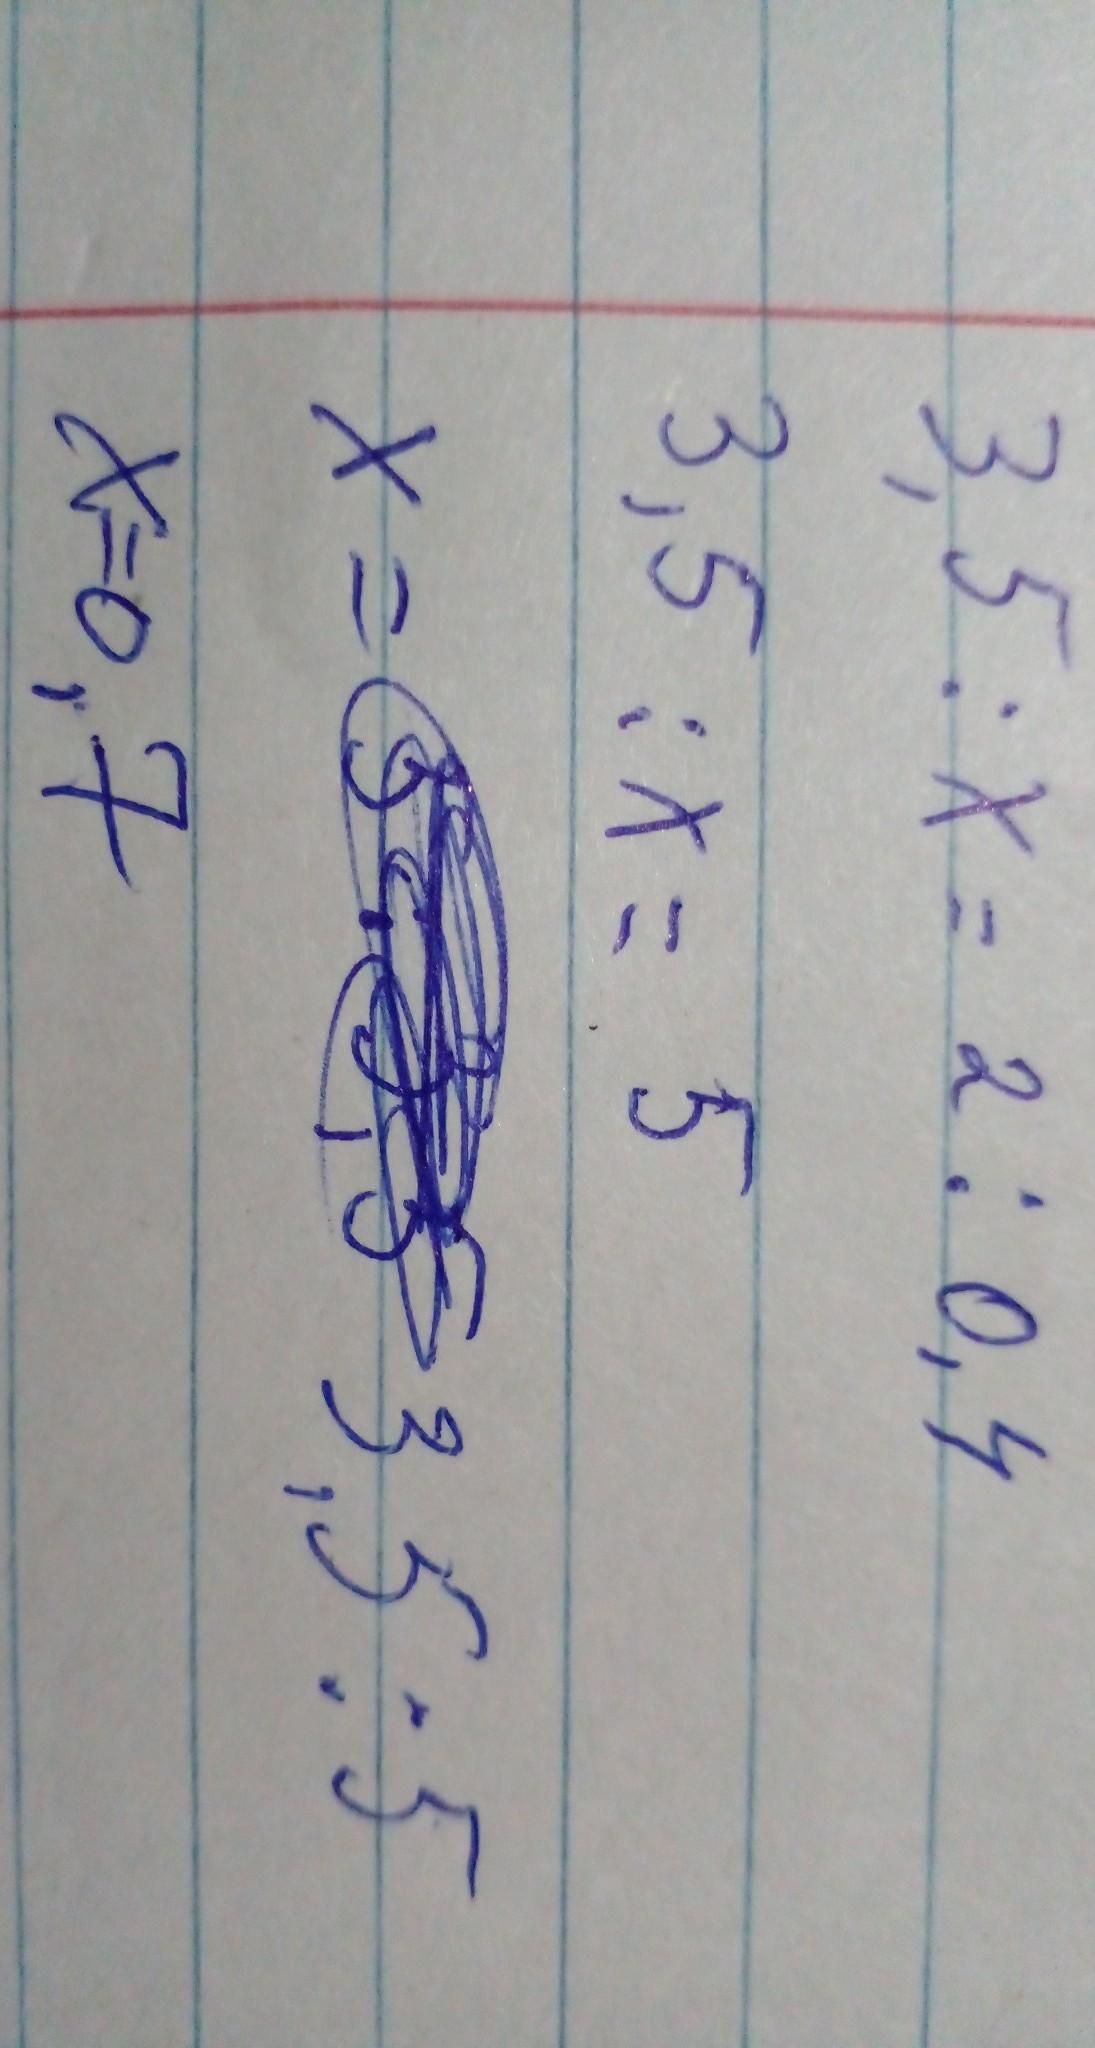 3,5 : x = 2 : 0,4
3,5 : x = 5
x = 3,5 : 5
x = 0,7